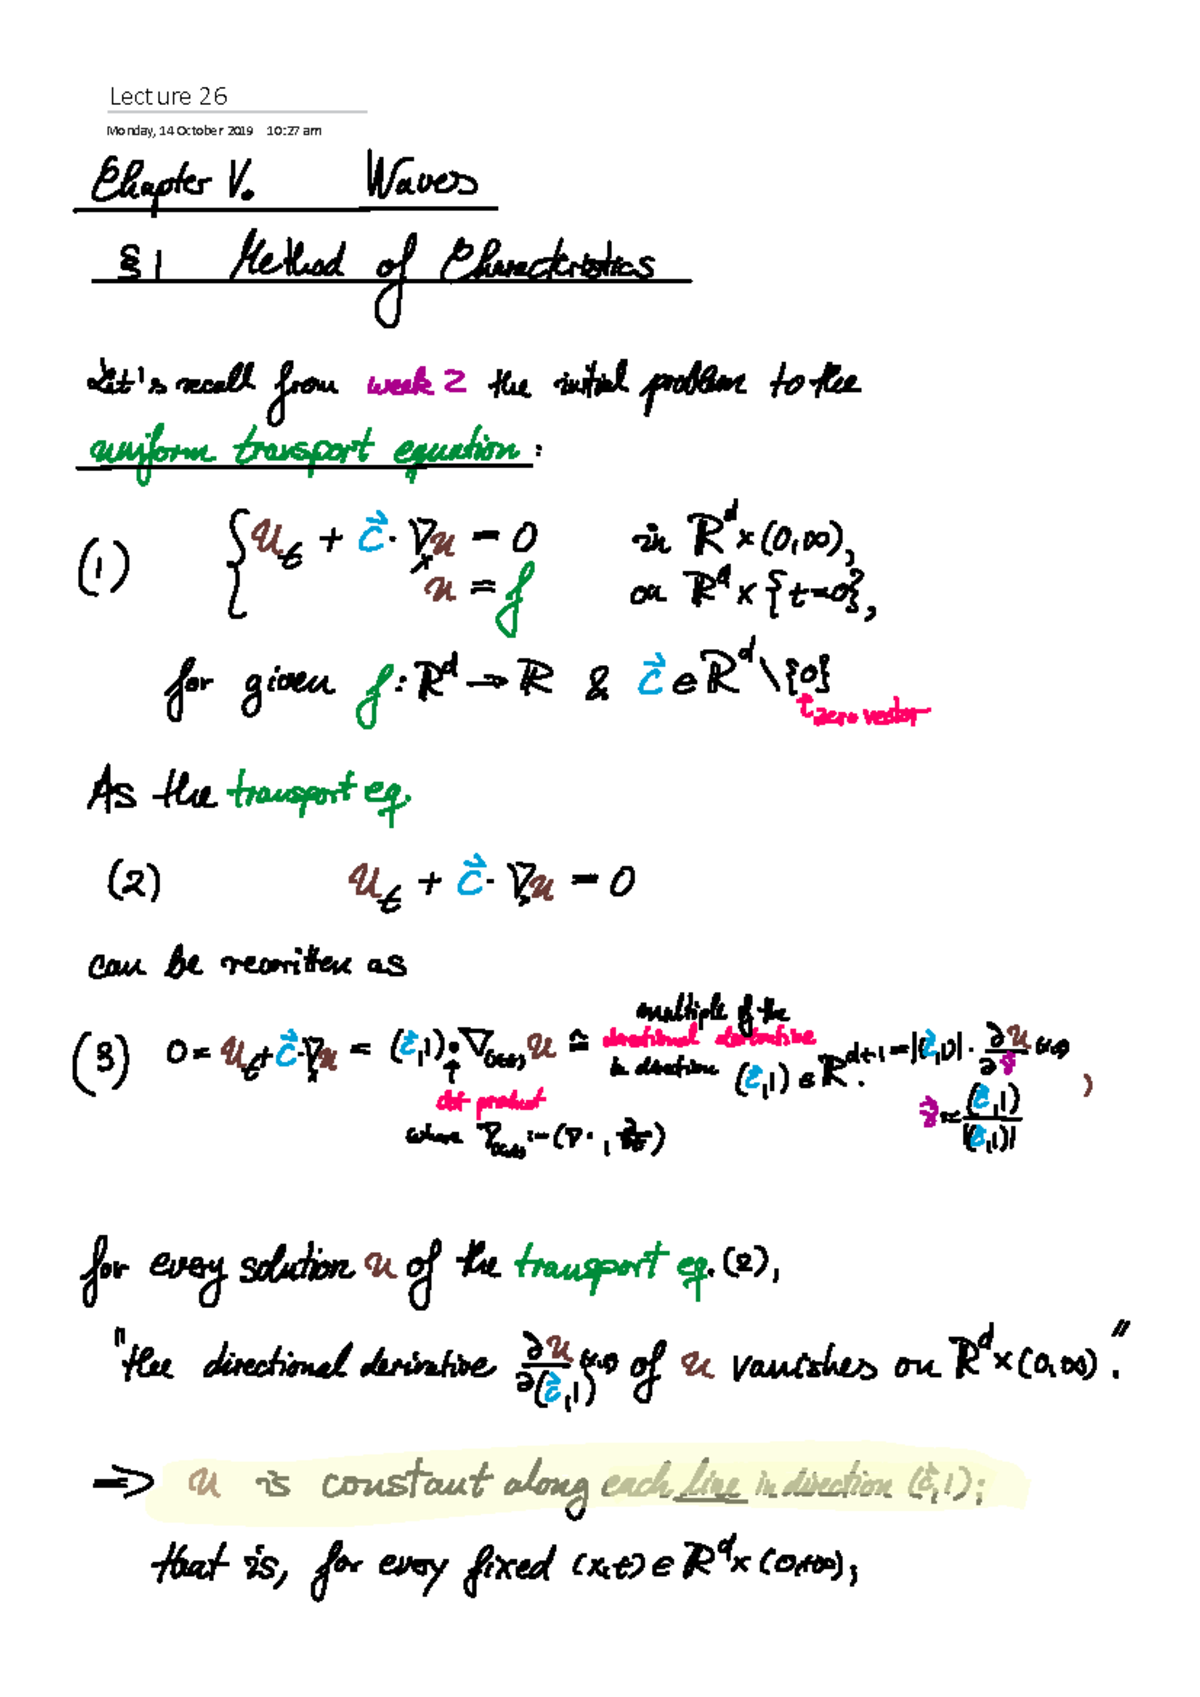 Lecture 26
Monday, 14 October 2019 10:27 am
Chapter V. Waves
§1 Method of Characteristics
Let's recall from week 2 the initial problem to the
uniform transport equation:
(1) { u_t + c⃗·∇_x u = 0 in ℝ^d×(0,∞),
u = f on ℝ^d × {t=0},
for given f: ℝ^d → ℝ & c⃗ ∈ ℝ^d \ {0}
↑ zero vector
As the transport eq.
(2) u_t + c⃗·∇_x u = 0
can be rewritten as
multiple of the
(3) 0 = u_t + c⃗·∇_x u = (c⃗,1)·∇_(x,t) u ≙ directional derivative in direction (c⃗,1) ∈ ℝ^{d+1} = |(c⃗,1)| · ∂u/∂γ⃗ (x,t)
↑ dot product
γ⃗ = (c⃗,1)/|(c⃗,1)|
where ∇_(x,t) := (∇·, ∂/∂t)
for every solution u of the transport eq. (2),
"the directional derivative ∂u/∂(c⃗,1) (x,t) of u vanishes on ℝ^d×(0,∞)."
=> u is constant along each line in direction (c⃗,1);
that is, for every fixed (x,t) ∈ ℝ^d×(0,+∞),